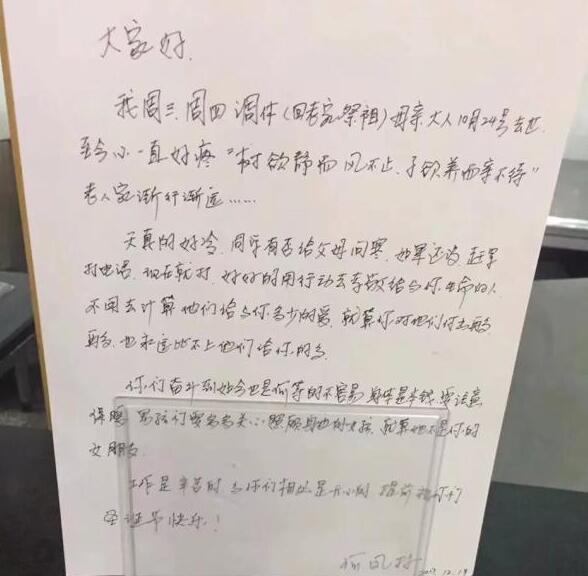 大家好.
我周三.周四调休(回老家祭祖)母亲大人10月24号去世.
至今心一直好疼"树欲静而风不止.子欲养而亲不待"
老人家渐行渐远……
天真的好冷.同学有否给父母问寒.如果还没 赶早
打电话.现在就打.好好的用行动去孝敬给与你生命的人
不用去计算他们给与你多少的爱.就算你对他们付出再多
再多.也永远比不上他们给你的多
你们奋斗到如今也是何等的不容易 身体是本钱.要注意
保暖 男孩们要多多关心照顾身边的女孩.就算她不是你的
女朋友.
工作是辛苦的 与你们相处是开心的 提前祝你们
圣诞节快乐!
12.19